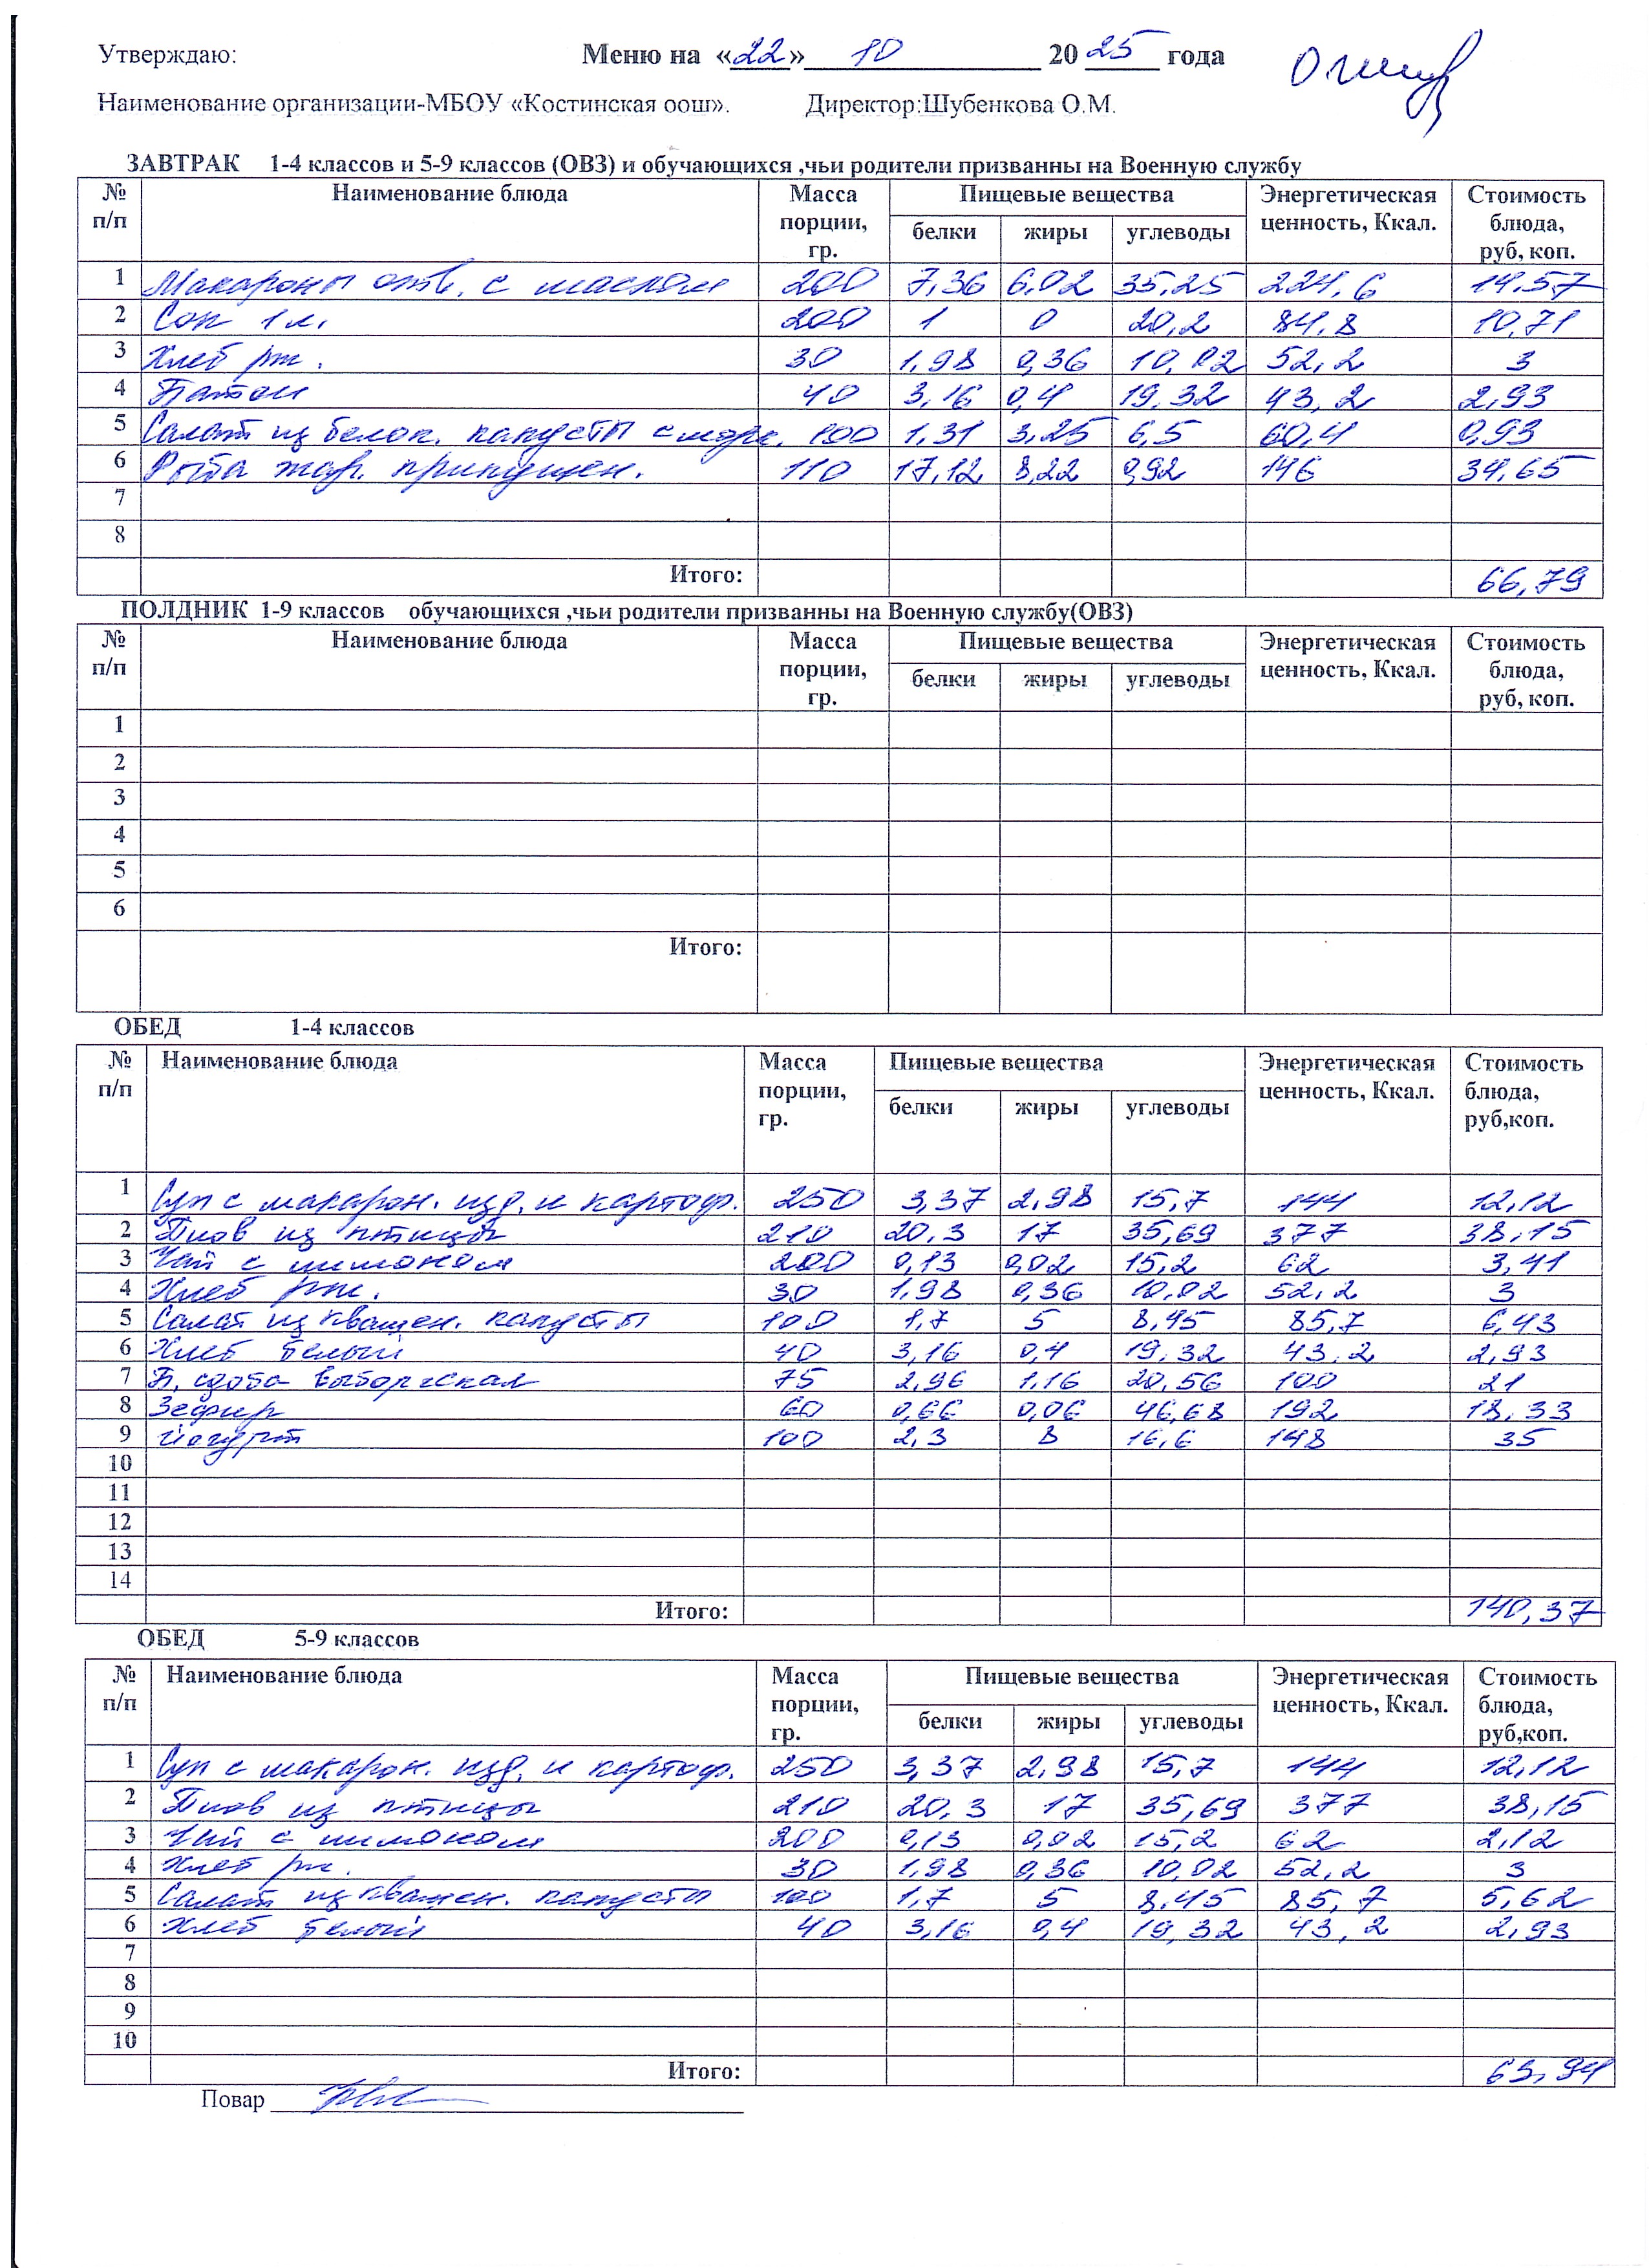 Утверждаю: Меню на «22» 10 20 25 года
Наименование организации-МБОУ «Костинская оош». Директор:Шубенкова О.М.
ЗАВТРАК 1-4 классов и 5-9 классов (ОВЗ) и обучающихся ,чьи родители призванны на Военную службу
№ п/п Наименование блюда Масса порции, гр. Пищевые вещества Энергетическая ценность, Ккал. Стоимость блюда, руб, коп.
белки жиры углеводы
1 Макароны отв. с маслом 200 7,36 6,02 35,25 224,6 14,57
2 Сок 1 л. 200 1 0 20,2 84,8 10,71
3 Хлеб рж. 30 1,98 0,36 10,02 52,2 3
4 Батон 40 3,16 0,4 19,32 43,2 2,93
5 Салат из белок. капусты с морк. 100 1,31 3,25 6,5 60,4 0,93
6 Рыба жар. припущен. 110 17,12 8,22 0,92 146 34,65
7
8
Итого: 66,79
ПОЛДНИК 1-9 классов обучающихся ,чьи родители призванны на Военную службу(ОВЗ)
№ п/п Наименование блюда Масса порции, гр. Пищевые вещества Энергетическая ценность, Ккал. Стоимость блюда, руб, коп.
белки жиры углеводы
1
2
3
4
5
6
Итого:
ОБЕД 1-4 классов
№ п/п Наименование блюда Масса порции, гр. Пищевые вещества Энергетическая ценность, Ккал. Стоимость блюда, руб,коп.
белки жиры углеводы
1 Суп с макарон. изд. и картоф. 250 3,37 2,98 15,7 144 12,12
2 Плов из птицы 210 20,3 17 35,69 377 38,15
3 Чай с лимоном 200 0,13 0,02 15,2 62 3,41
4 Хлеб рж. 30 1,98 0,36 10,02 52,2 3
5 Салат из квашен. капусты 100 1,7 5 8,45 85,7 6,43
6 Хлеб белый 40 3,16 0,4 19,32 43,2 2,93
7 Б. сдоба Выборгская 75 2,96 1,16 20,56 100 21
8 Зефир 60 0,66 0,06 46,68 192 18,33
9 йогурт 100 2,3 8 16,6 148 35
10
11
12
13
14
Итого: 140,37
ОБЕД 5-9 классов
№ п/п Наименование блюда Масса порции, гр. Пищевые вещества Энергетическая ценность, Ккал. Стоимость блюда, руб,коп.
белки жиры углеводы
1 Суп с макарон. изд. и картоф. 250 3,37 2,98 15,7 144 12,12
2 Плов из птицы 210 20,3 17 35,69 377 38,15
3 Чай с лимоном 200 0,13 0,02 15,2 62 2,12
4 Хлеб рж. 30 1,98 0,36 10,02 52,2 3
5 Салат из квашен. капусты 100 1,7 5 8,45 85,7 5,62
6 Хлеб белый 40 3,16 0,4 19,32 43,2 2,93
7
8
9
10
Итого: 63,94
Повар